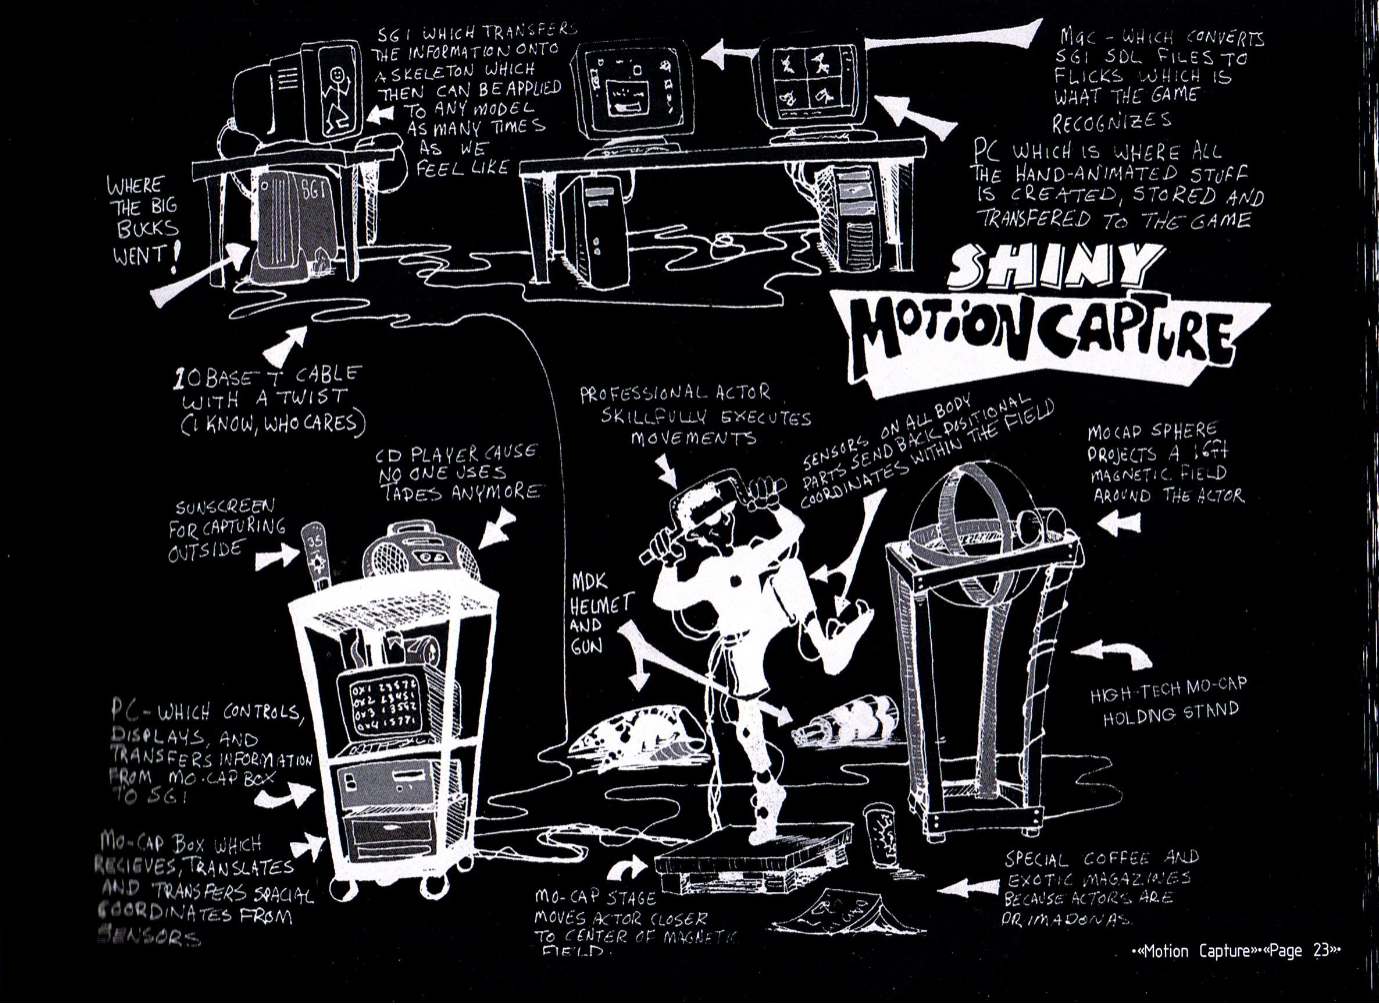 SGI WHICH TRANSFERS
THE INFORMATION ONTO
A SKELETON WHICH
THEN CAN BE APPLIED
TO ANY MODEL
AS MANY TIMES
AS WE
FEEL LIKE
MAC - WHICH CONVERTS
SGI SDL FILES TO
FLICKS WHICH IS
WHAT THE GAME
RECOGNIZES
PC WHICH IS WHERE ALL
THE HAND-ANIMATED STUFF
IS CREATED, STORED AND
TRANSFERED TO THE GAME
WHERE
THE BIG
BUCKS
WENT!
SGI
SHINY
MOTION CAPTURE
10 BASE T CABLE
WITH A TWIST
(I KNOW, WHO CARES)
PROFESSIONAL ACTOR
SKILLFULLY EXECUTES
MOVEMENTS
SENSORS ON ALL BODY
PARTS SEND BACK POSITIONAL
COORDINATES WITHIN THE FIELD
MOCAP SPHERE
PROJECTS A 16ft
MAGNETIC FIELD
AROUND THE ACTOR
CD PLAYER CAUSE
NO ONE USES
TAPES ANYMORE
SUNSCREEN
FOR CAPTURING
OUTSIDE
35
MDK
HELMET
AND
GUN
HIGH-TECH MO-CAP
HOLDING STAND
PC - WHICH CONTROLS,
DISPLAYS, AND
TRANSFERS INFORMATION
FROM MO-CAP BOX
TO SGI
MO-CAP BOX WHICH
RECIEVES, TRANSLATES
AND TRANSFERS SPACIAL
COORDINATES FROM
SENSORS
MO-CAP STAGE
MOVES ACTOR CLOSER
TO CENTER OF MAGNETIC
FIELD.
SPECIAL COFFEE AND
EXOTIC MAGAZINES
BECAUSE ACTORS ARE
PRIMADONAS.
•«Motion Capture»•«Page 23»•